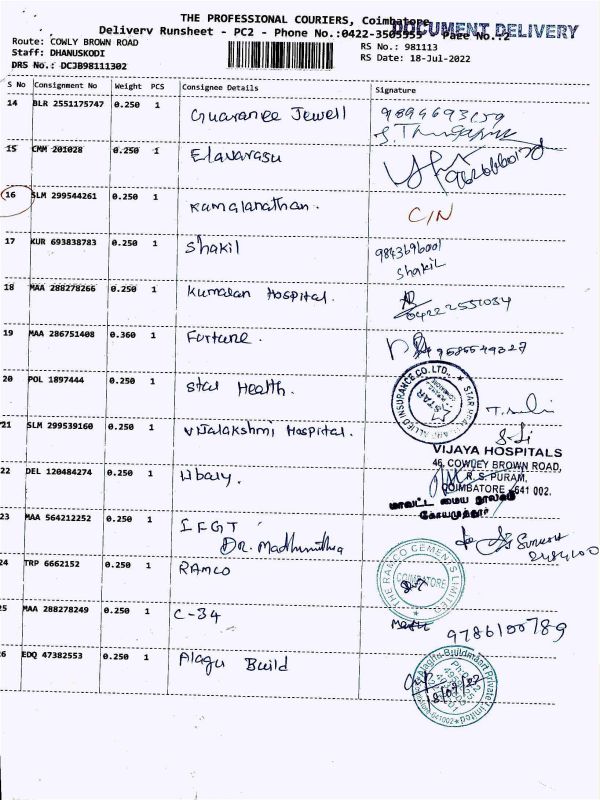 THE PROFESSIONAL COURIERS, Coimbatore
Delivery Runsheet - PC2 - Phone No.:0422-3505955 Page No.:2
DOCUMENT DELIVERY
Route: COWLY BROWN ROAD
Staff: DHANUSKODI
DRS No.: DCJB98111302
RS No.: 981113
RS Date: 18-Jul-2022
S No Consignment No Weight PCS Consignee Details Signature
14 BLR 2551175747 0.250 1 Guarantee Jewell
15 CMM 201028 0.250 1 Elavarasu
16 SLM 299544261 0.250 1 Kamalanathan. C/N
17 KUR 693838783 0.250 1 Shakil 9843696001
Shakil
18 MAA 288278266 0.250 1 Kumaran Hospital.
04222551034
19 MAA 286751408 0.360 1 Fortune. 9585549327
20 POL 1897444 0.250 1 Star Health.
STAR HEALTH AND ALLIED INSURANCE CO. LTD.,
STAR
21 SLM 299539160 0.250 1 Vijalakshmi Hospital.
VIJAYA HOSPITALS
46, COWLEY BROWN ROAD,
R. S. PURAM,
COIMBATORE - 641 002.
22 DEL 120484274 0.250 1 Libary.
மாவட்ட மைய நூலகம்
கோயமுத்தூர்
23 MAA 564212252 0.250 1 IFGT
24 TRP 6662152 0.250 1 RAMCO
THE RAMCO CEMENTS LIMITED
COIMBATORE
25 MAA 288278249 0.250 1 C-34
9786100789
26 EDQ 47382553 0.250 1 Alagu Build
18/07/22